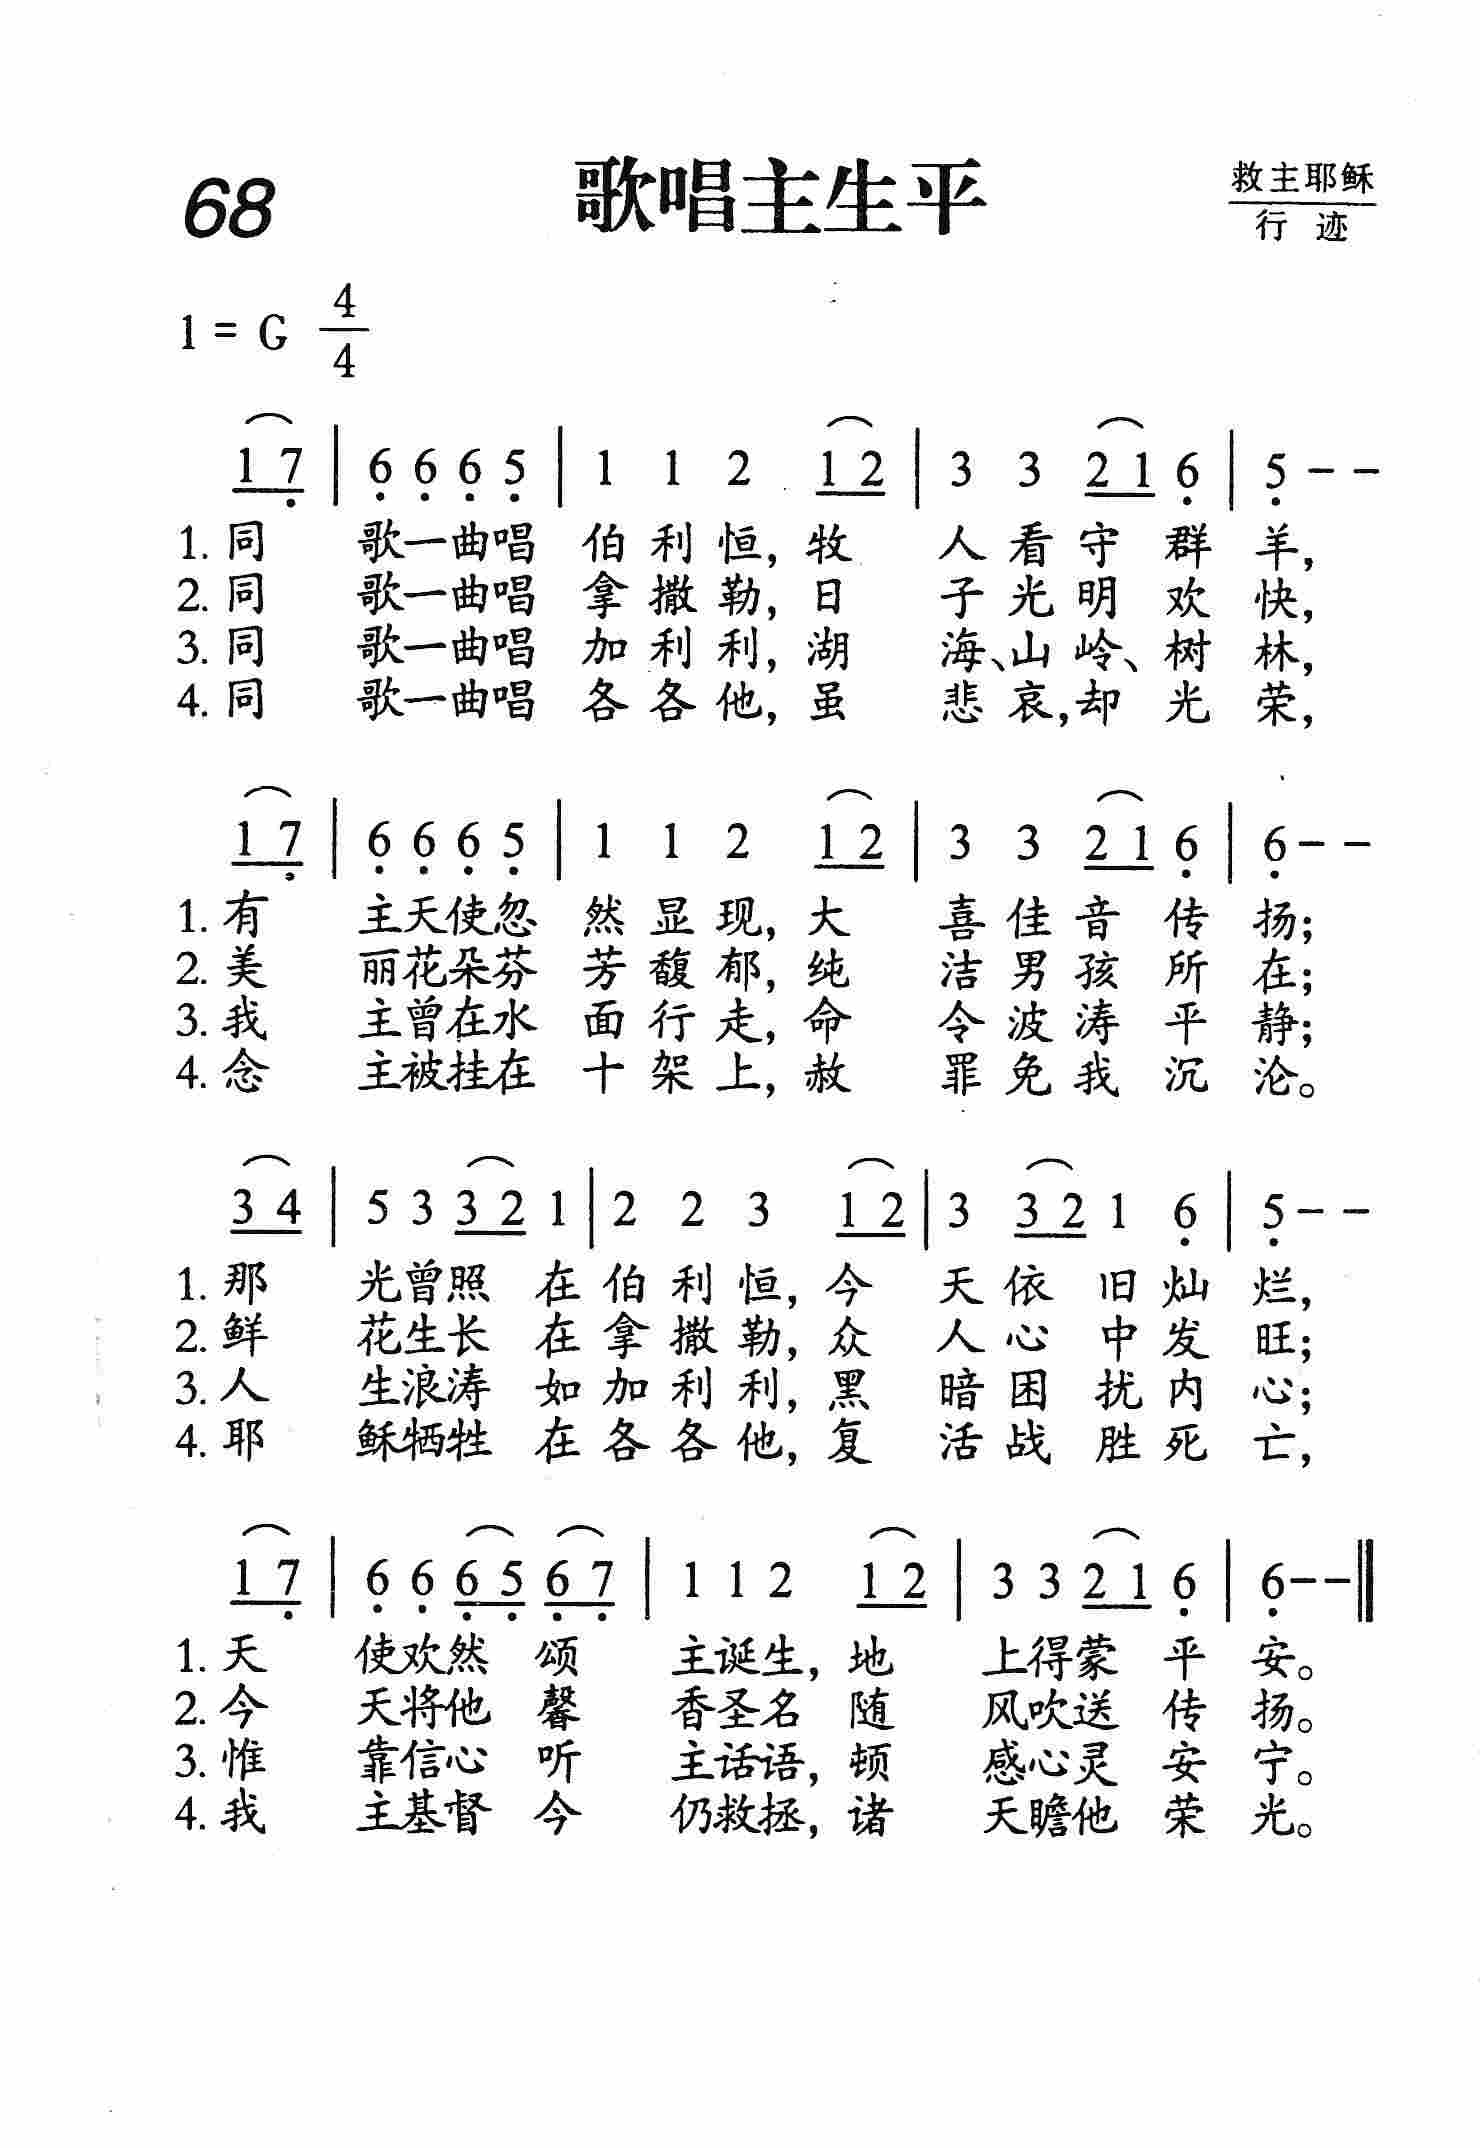 68
歌唱主生平
救主耶稣
行 迹
1 = G 4/4
1 7 | 6 6 6 5 | 1 1 2 1 2 | 3 3 2 1 6 | 5 - -
1. 同 歌一曲唱 伯利恒, 牧 人看守群羊,
2. 同 歌一曲唱 拿撒勒, 日 子光明欢快,
3. 同 歌一曲唱 加利利, 湖 海、山岭、树林,
4. 同 歌一曲唱 各各他, 虽 悲哀,却光荣,
1 7 | 6 6 6 5 | 1 1 2 1 2 | 3 3 2 1 6 | 6 - -
1. 有 主天使忽 然显现, 大 喜佳音传扬;
2. 美 丽花朵芬 芳馥郁, 纯 洁男孩所在;
3. 我 主曾在水 面行走, 命 令波涛平静;
4. 念 主被挂在 十架上, 赦 罪免我沉沦。
3 4 | 5 3 3 2 1 | 2 2 3 1 2 | 3 3 2 1 6 | 5 - -
1. 那 光曾照在 伯利恒, 今 天依旧灿烂,
2. 鲜 花生长在 拿撒勒, 众 人心中发旺;
3. 人 生浪涛如 加利利, 黑 暗困扰内心;
4. 耶 稣牺牲在 各各他, 复 活战胜死亡,
1 7 | 6 6 6 5 6 7 | 1 1 2 1 2 | 3 3 2 1 6 | 6 - - ||
1. 天 使欢然颂 主诞生, 地 上得蒙平安。
2. 今 天将他馨 香圣名 随 风吹送传扬。
3. 惟 靠信心听 主话语, 顿 感心灵安宁。
4. 我 主基督今 仍救拯, 诸 天瞻他荣光。